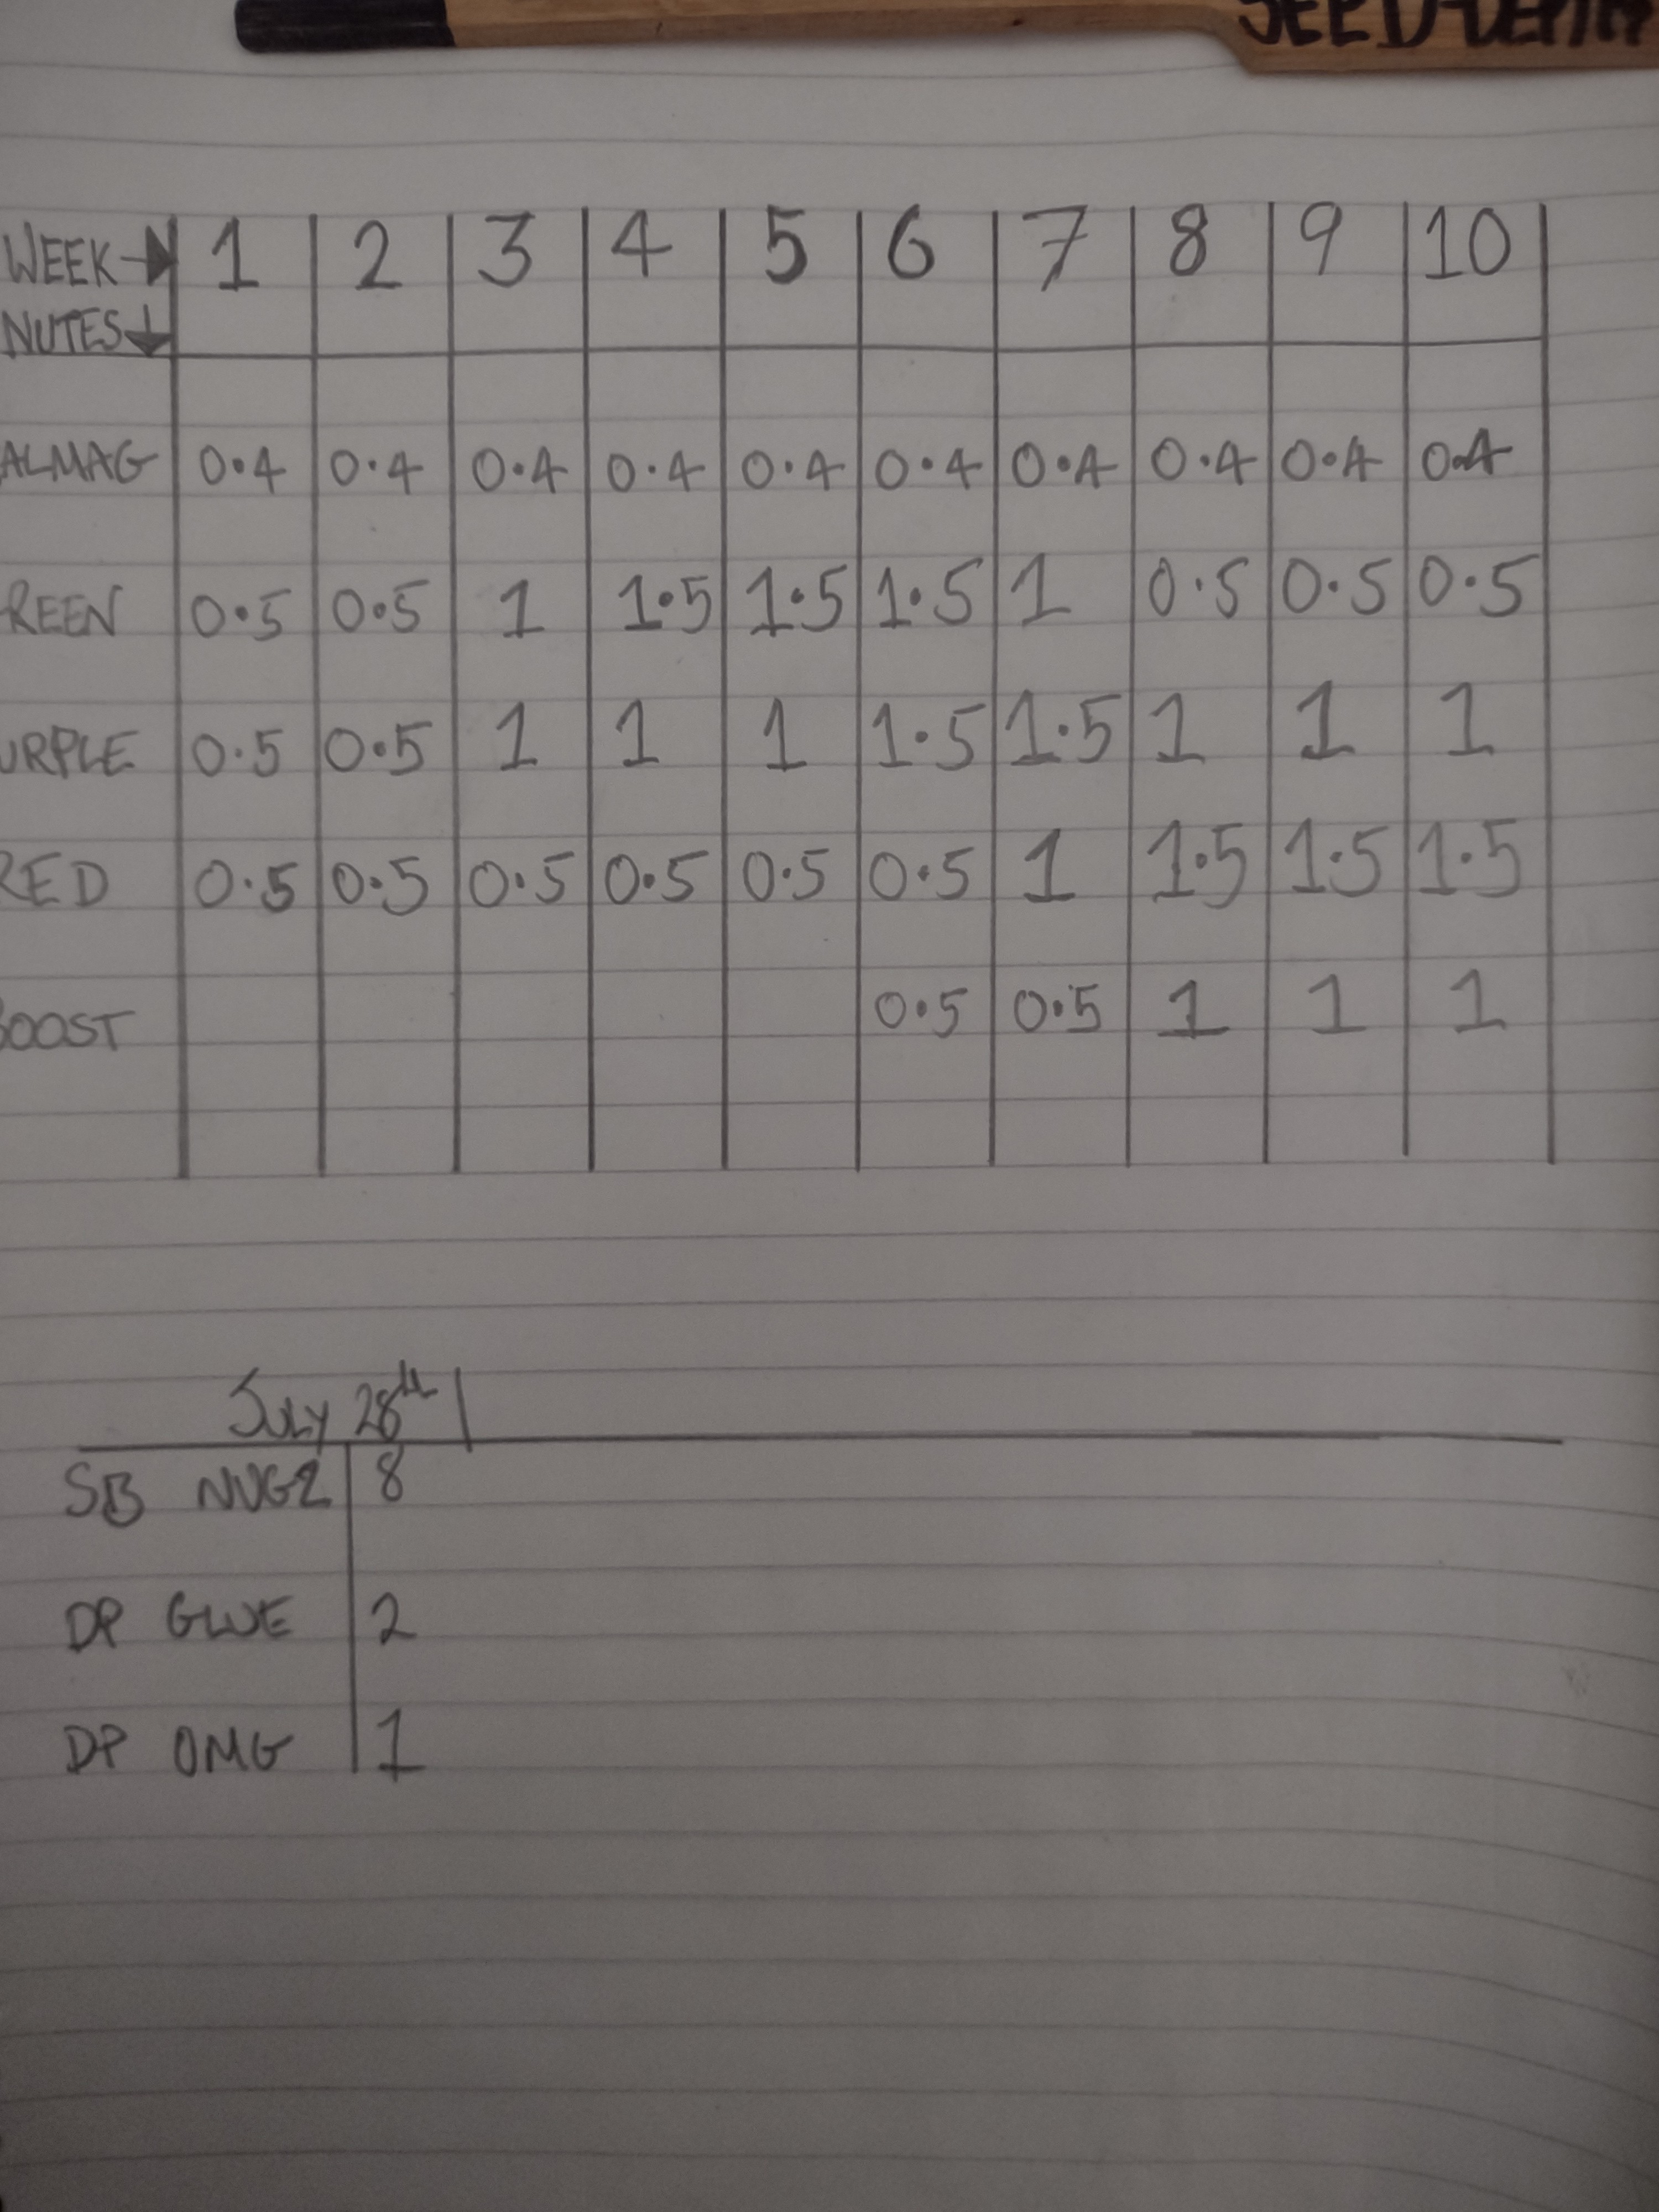 SEED DEPTH
WEEK → 1 2 3 4 5 6 7 8 9 10
NUTES ↓
ALMAG 0.4 0.4 0.4 0.4 0.4 0.4 0.4 0.4 0.4 0.4
REEN 0.5 0.5 1 1.5 1.5 1.5 1 0.5 0.5 0.5
URPLE 0.5 0.5 1 1 1 1.5 1.5 1 1 1
RED 0.5 0.5 0.5 0.5 0.5 0.5 1 1.5 1.5 1.5
BOOST 0.5 0.5 1 1 1
JULY 28th
SB NUGZ 8
DP GLUE 2
DP OMG 1